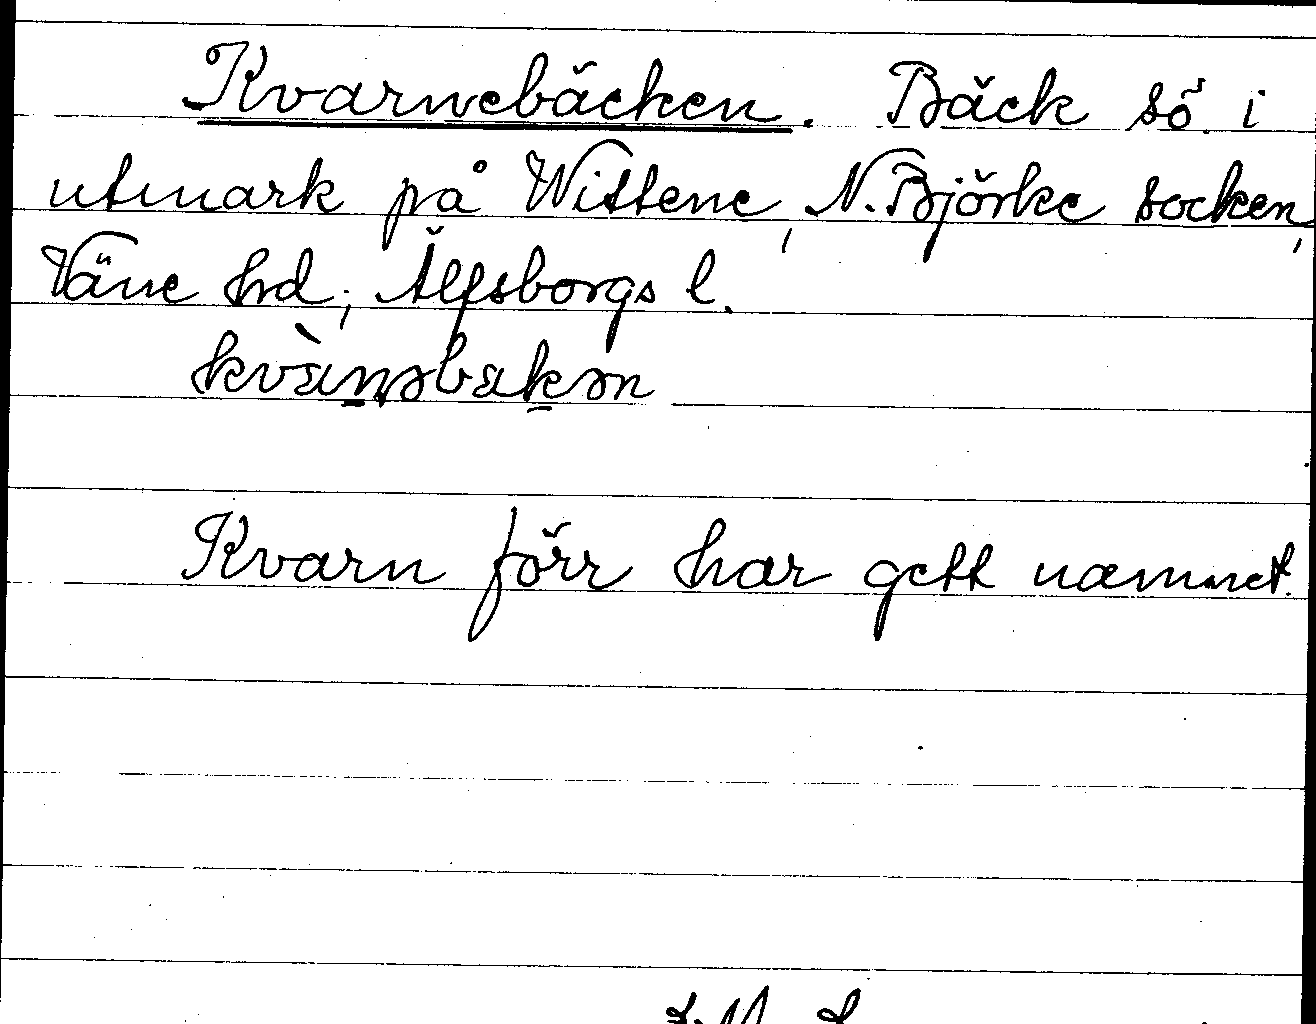 Kvarnebäcken. Bäck sö. i
utmark på Wittene, N. Björke socken,
Väne hd, Älfsborgs l.
kvànəbakən
Kvarn förr har gett namnet.